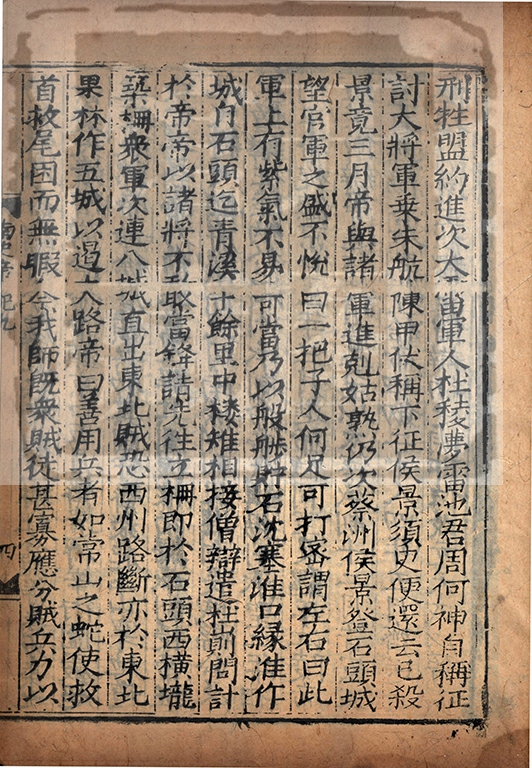 刑牲盟約進次大雷軍人杜稜夢雷池君周何神自稱征
討大將軍乗朱航陳甲仗稱下征侯景須史便還云已殺
景竟三月帝與諸軍進剋姑孰仍次蔡洲侯景登石頭城
望官軍之盛不悅曰一把子人何足可打密謂左右曰此
軍上有紫氣不易可當乃以般舩貯石沈塞淮口縁淮作
城自石頭迄青溪十餘里中楼雉相接僧辯遣杜崱問計
於帝帝以諸將不敢當鋒請先往立柵即於石頭西橫壠
築柵衆軍次連八城直出東北賊恐西州路斷亦於東北
果林作五城以遏大路帝曰善用兵者如常山之蛇使救
首救尾困而無暇今我師既衆賊徒甚寡應分賊兵力以
四